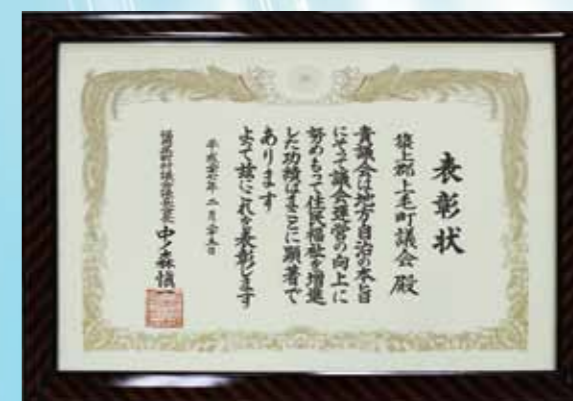 表彰状
築上郡上毛町議会殿
貴議会は地方自治の本旨
にそって議会運営の向上に
努めもって住民福祉を増進
した功績はまことに顕著で
あります
よって茲にこれを表彰します
平成 年二月 日
福岡県町村議会議長会長 中ノ森愼一